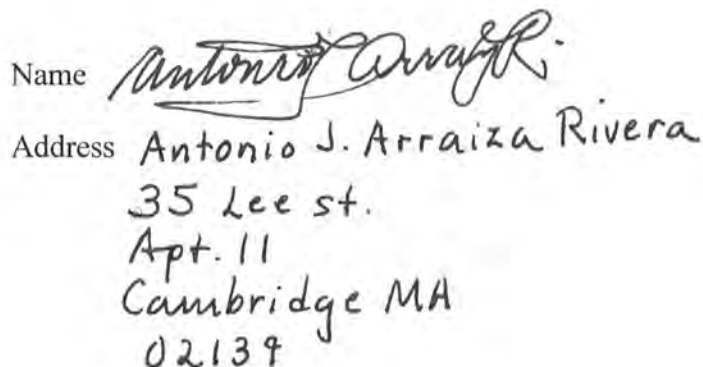 Name Antonio Arraiza R.
Address Antonio J. Arraiza Rivera
35 Lee st.
Apt. 11
Cambridge MA
02139